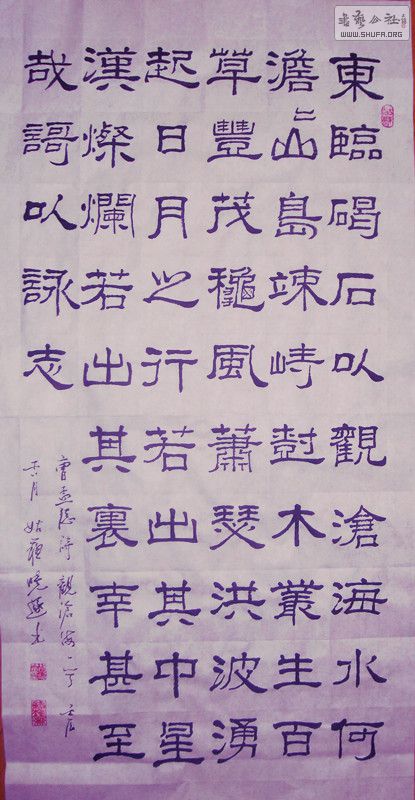 東臨碣石以觀滄海水何
澹〻山島竦峙尌木叢生百
草豐茂龝風蕭瑟洪波湧
起日月之行若出其中星
漢燦爛若出其裏幸甚至
哉謌以詠志
曹孟德詩觀滄海
月姑蘇曉
書藝公社
WWW.SHUFA.ORG